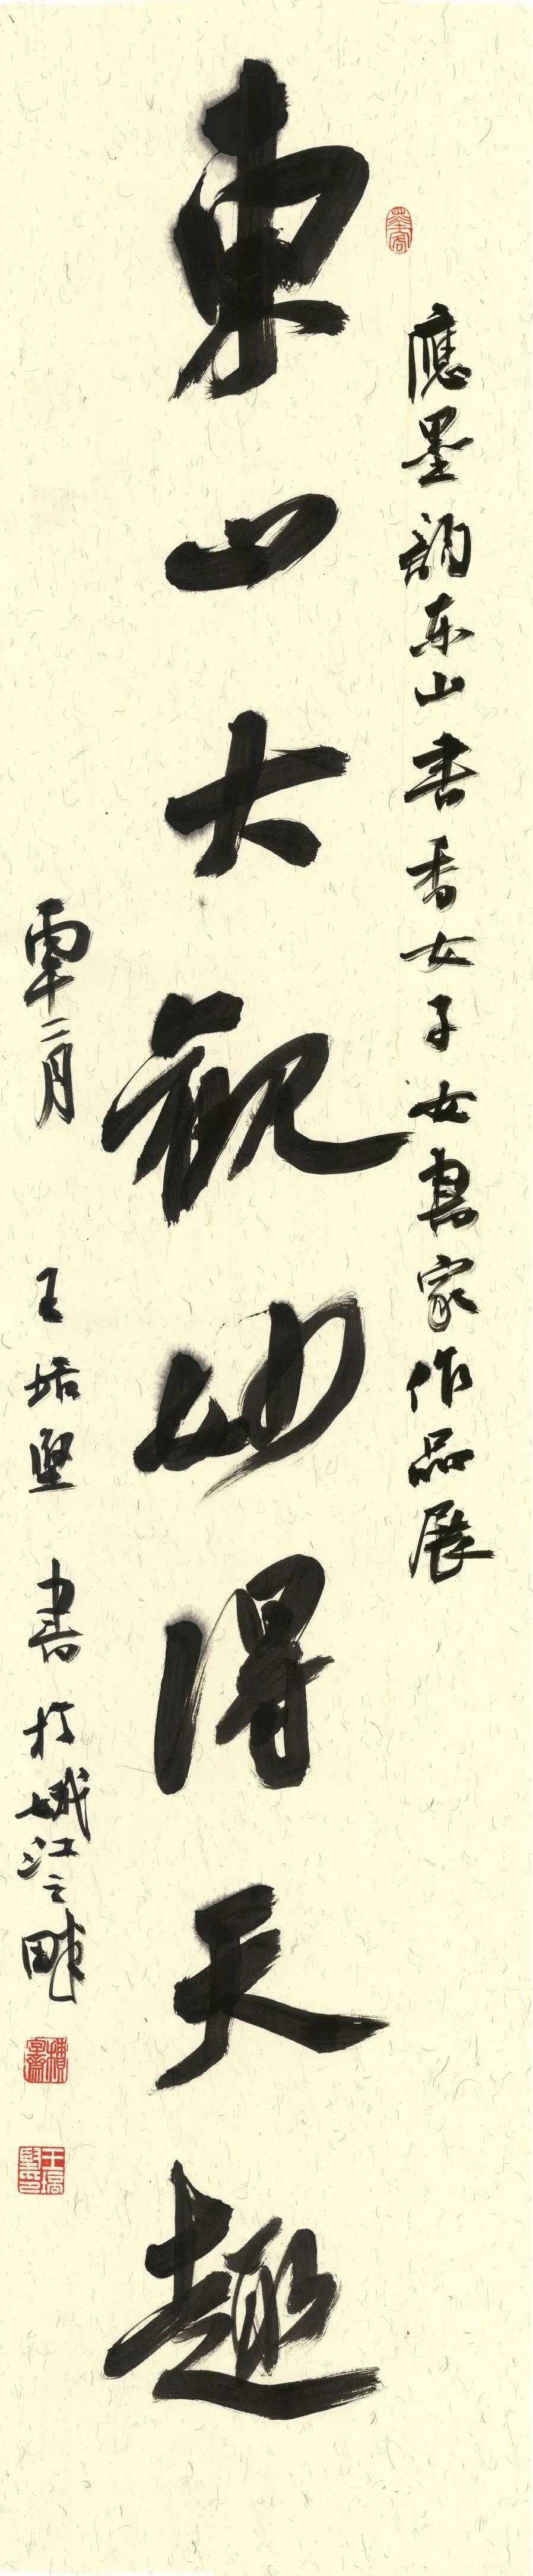 墨客
應墨韵东山書香女子女書家作品展
東山大觀妙得天趣
二月 王 堅 書於娥江之畔